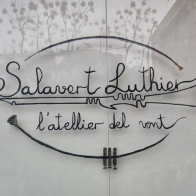 Salavert Luthier
l'atellier del vent